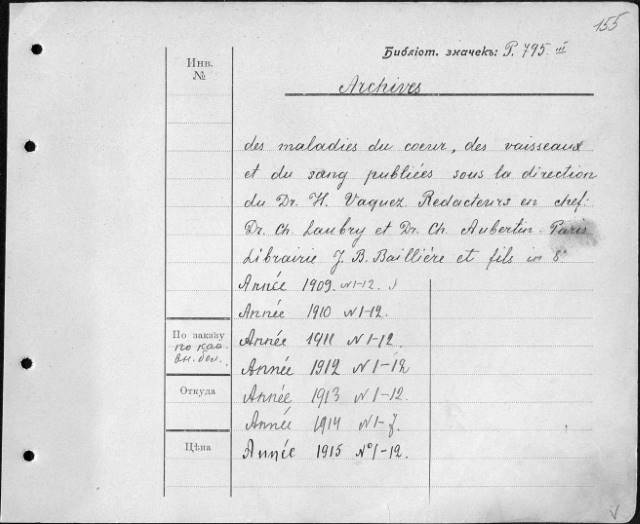 155
Библіот. значекъ: P. 795. III
Инв.
№
Archives
des maladies du coeur, des vaisseaux
et du sang publiées sous la direction
du Dr. H. Vaquez Redacteurs en chef:
Dr. Ch. Laubry et Dr. Ch. Aubertin Paris
Librairie J. B. Baillière et fils in 8°
Année 1909. N 1-12.
Année 1910 N 1-12.
Année 1911 N 1-12.
Année 1912 N 1-12
Année 1913 N 1-12.
Année 1914 N 1-7.
Année 1915 N° 1-12.
По заказу
по каб.
вн. бол.
Откуда
Цѣна